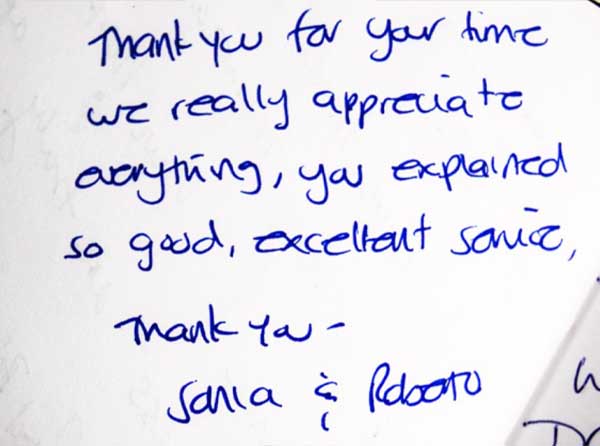 Thank you for your time
we really appreciate
everything, you explained
so good, excellent service,
Thank you -
Sonia & Roberto